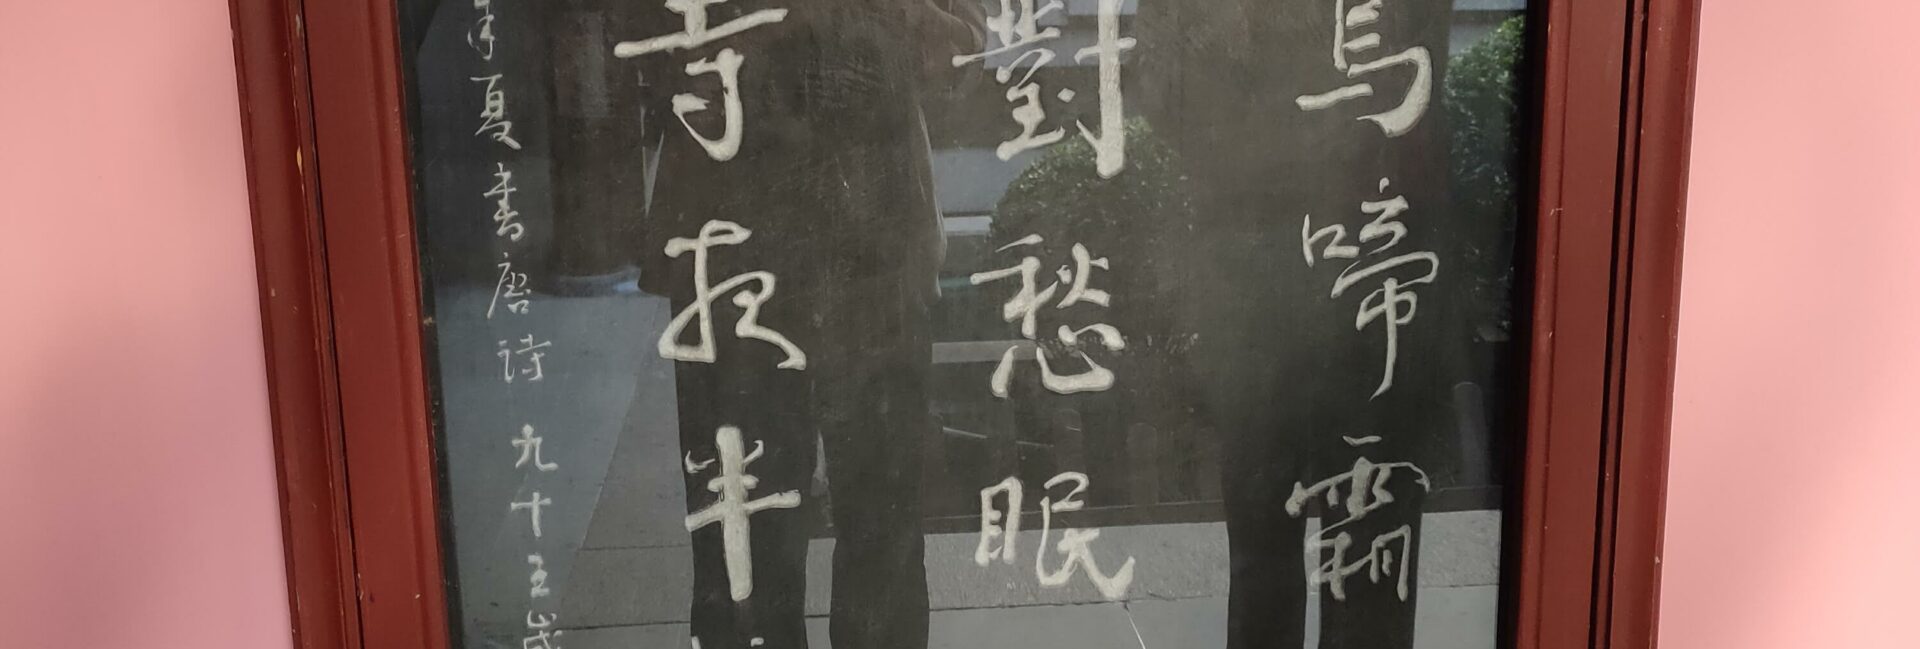 烏啼霜
對愁眠
寺夜半
年夏書唐詩 九十五歲